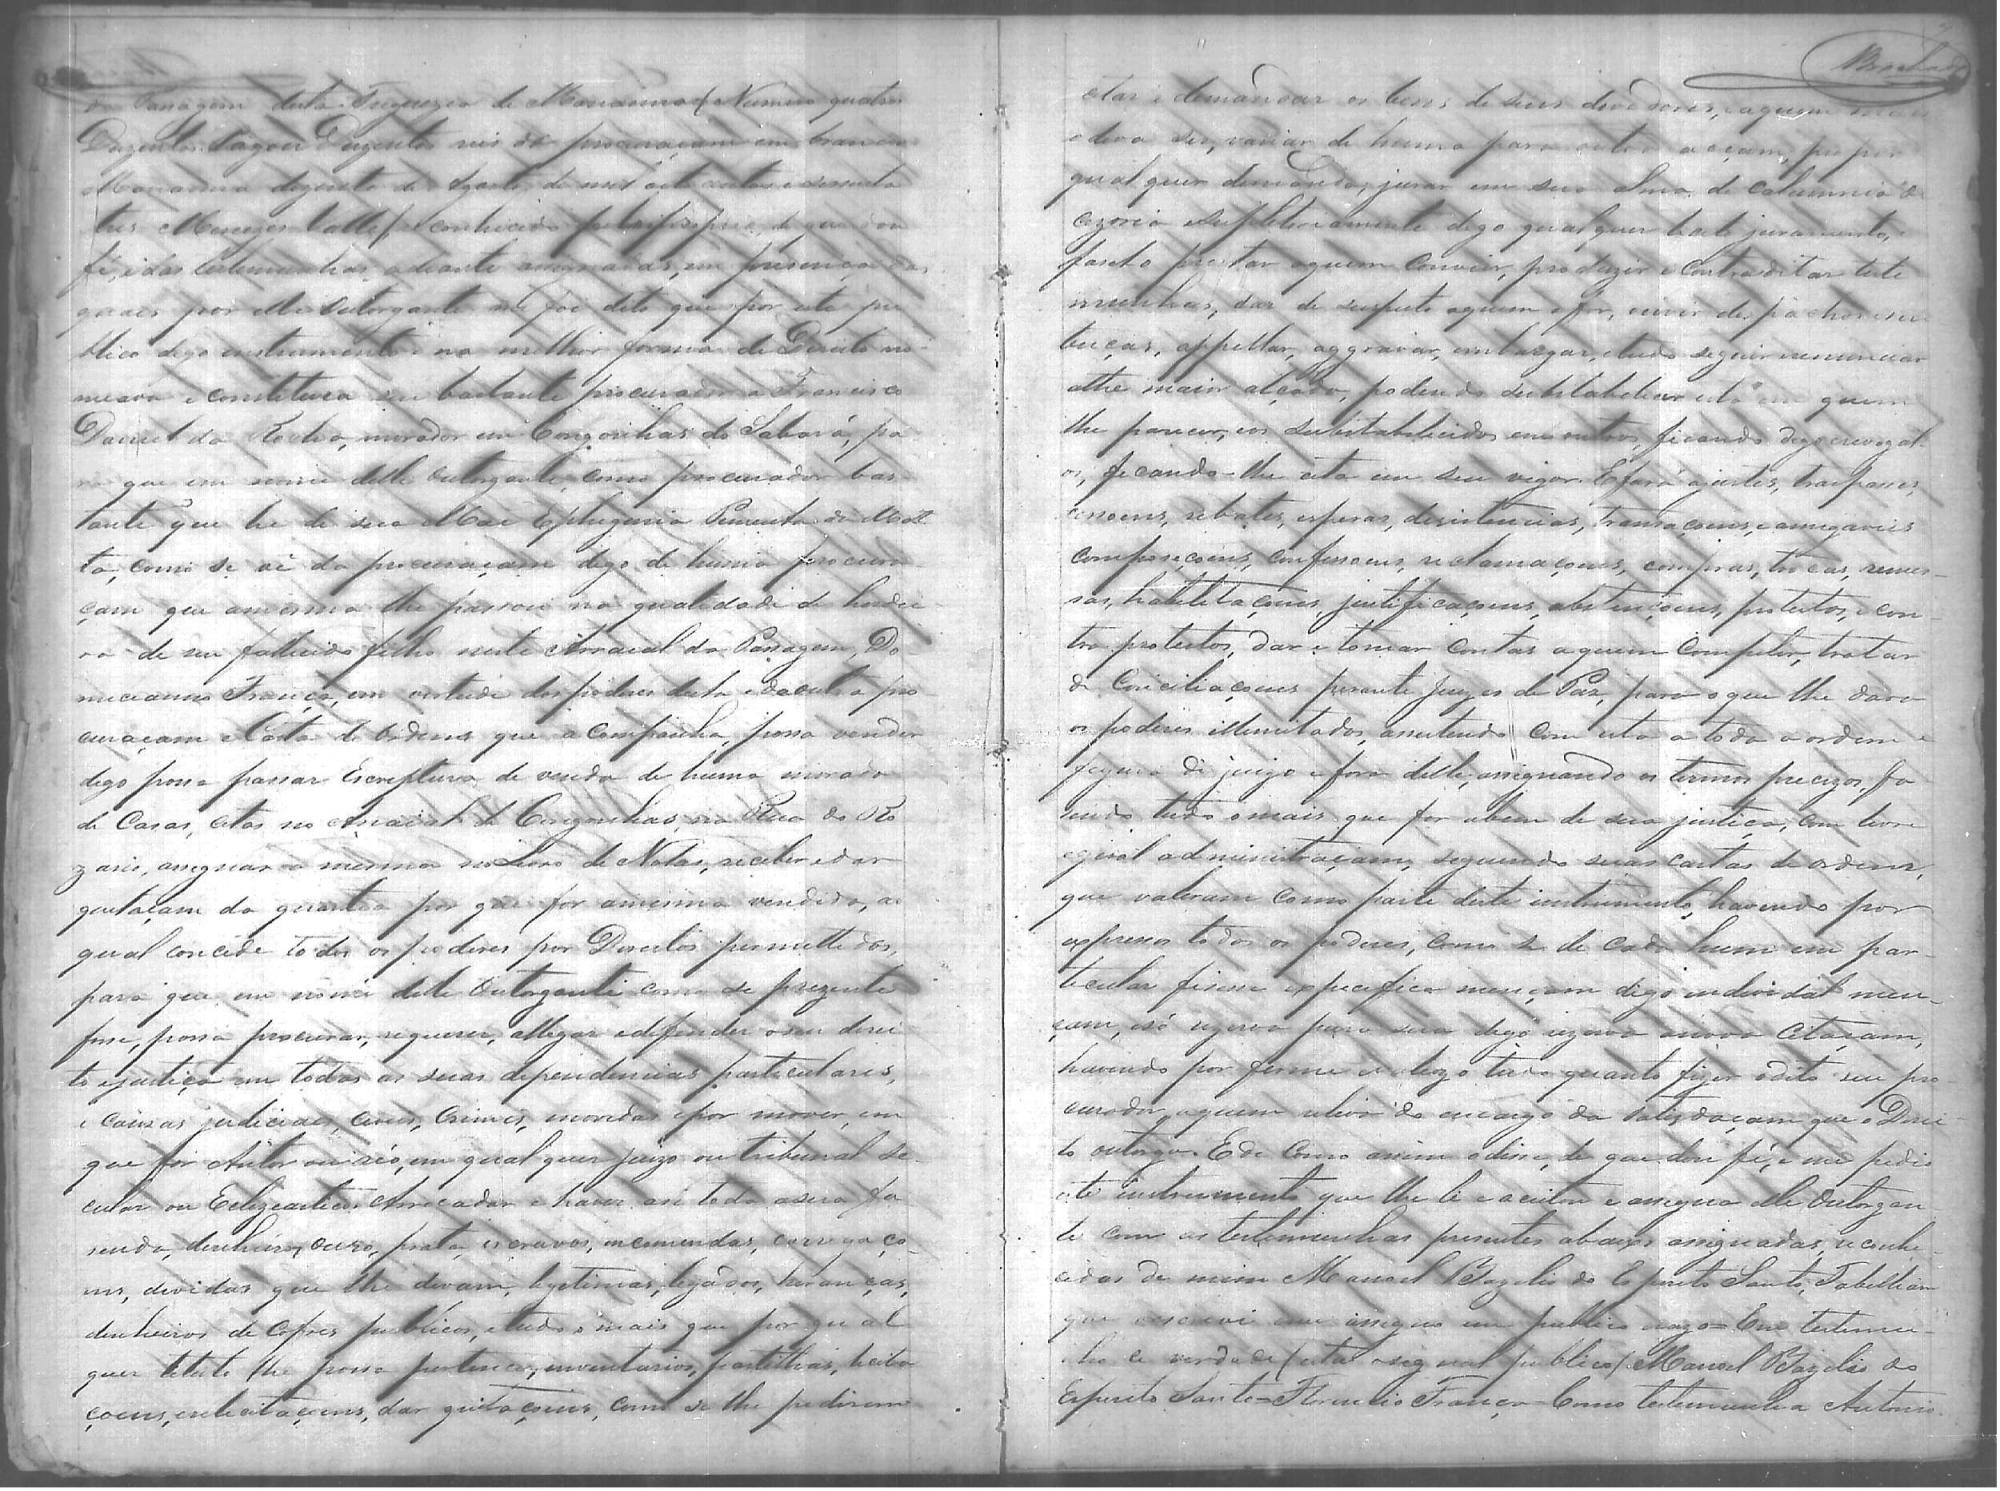 da Passagem desta Freguezia de Marianna (Numero quatro
Duzentos Pagou Duzentos reis da procuraçam em branco
Marianna dezesete de Agosto de mil oito centos e secenta
tres Menezes Valle) reconhecido pelo proprio, de que dou
fé, e das testemunhas adiante assignadas, em presença das
quaes por elle outorgante me foi dito que por este pu
blico digo instrumento e na melhor forma de Direito no-
meava e constituia seu bastante procurador a Francisco
Daniel da Rocha, morador em Congonhas do Sabará, pa
ra que em nome delle outorgante, como procurador bas
tante que he de sua Mae Ephigenia Pimenta da Mat
ta, como se vê da procuraçam digo de huma procura
çam que a mesma lhe passou na qualidade de herdei
ra de seu fallecido filho neste Arraial da Passagem, Do
micianno França, em virtude dos poderes desta e da outra pro
curaçam e Carta de Ordens que acompanha, possa vender
digo possa passar Escreptura de venda de huma morada
de Casas, citas no Arraial de Congonhas, na Rua do Ro
zario, assignar a mesma no Livro de Notas, receber e dar
quitaçam da quantia por que for a mesma vendida, ao
qual concede todos os poderes por Direitos permettidos,
para que em nome delle Outorgante como se prezente
fosse, possa procurar, requerer, allegar e defender o seu direi
to e justiça em todas as suas dependencias particulares,
e cauzas judiciaes, civeis, Crimes, movidas e por mover, em
que for Autor ou réo, em qual quer juizo ou tribunal se
cular ou Eclizeastico Arrecadar e haver asi toda a sua fa
senda, dinheiro, ouro, prata, escravos, encomendas, carregaço-
ens, dividas que lhe devam, legitimas, legados, heranças,
dinheiros de Cofres publicos, e tudo o mais que por qual
quer titulo lhe possa pertencer, inventarios, partilhas, licita
çoens, e solicitaçoens, dar quitaçoens, como se lhe pedirem
citar e demandar os bens de seus devedores, e a quem mais
o deva ser, variar de huma para outra acçam, propor
qual quer demanda, jurar em sua Alma de calumnia de
cizoria e supletoriamente digo qual quer licito juramento, e
faselo prestar a quem convier, produzir e contraditar teste
munhas, dar de suspeito a quem o for, ouvir despachos e sen
tenças, appellar, aggravar, embargar, e tudo seguir e renunciar
athe maior alçada, podendo substabelecer esta em quem
lhe parecer, e os substabelecidos em outros, ficando digo e revogal
os, ficando-lhe esta em seu vigor. E fará ajustes, traspasses,
cessoens, rebates, esperas, desistencias, transaçoens, e amigaveis
composiçoens, confissoens, reclamaçoens, compras, trocas, remes-
sas, habilitaçoens, justificaçoens, abstençoens, protestos, e con-
tra protestos, dar e tomar contas a quem competir, tratar
de Conciliaçoens perante Juizes de Paz, para o que lhe dava
os poderes illimitados, assistendo com esta a toda a ordem e
figura de juizo e fora delle, assignando os termos precizos, fa
sendo tudo o mais que for a bem de sua justiça, com livre
e geral administraçam, seguindo suas cartas de ordens,
que valeram como parte deste instrumento, havendo por
expressos todos os poderes, como se de cada hum em par-
ticular fisesse expecifica mençam digo individal men-
çam, e só rezerva para sua digo rezerva a nova citaçam,
havendo por firme e valiozo tudo quanto fizer o dito seu pro-
curador, a quem releva do encargo da satisdaçam que o Direi-
to outorga. E de como assim o disse, de que dou fé, e me pedio
este instrumento que lhe li e aceitou e assigna elle Outorgan-
te com as testemunhas presentes abaixo assignadas, reconhe-
cidas de mim Manoel Bazilio do Esperito Santo, Tabelliam
que escrevi e me assigno em publico e razo = Em testemu-
nho de verdade (estava o signal publico) Manoel Bazilio do
Esperito Santo = Florencio França = Como testemunha Antonio